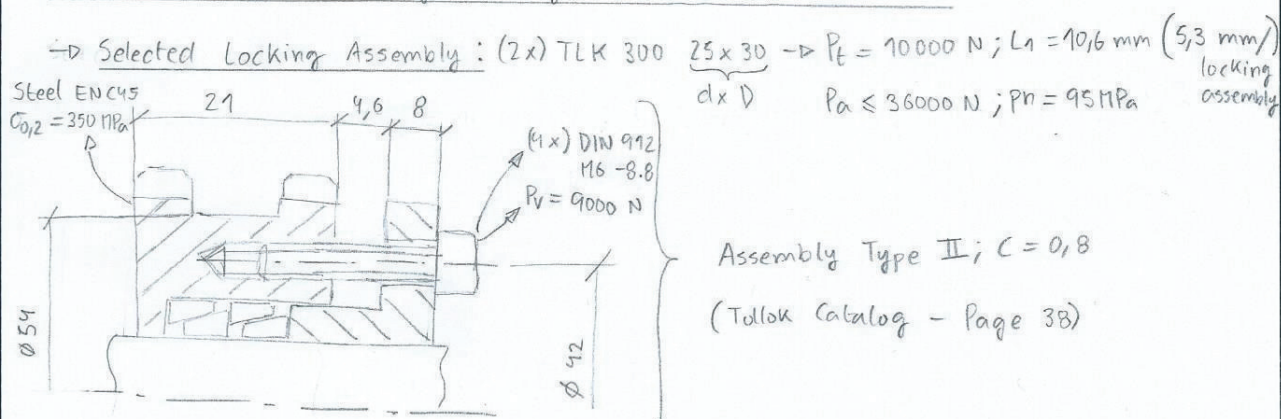 → Selected Locking Assembly : (2x) TLK 300 25 x 30 → Pt = 10000 N ; L1 = 10,6 mm (5,3 mm/
locking
assembly
d x D
Pa ≤ 36000 N ; Pn = 95 MPa
Steel EN C45
σ0,2 = 350 MPa
21
4,6
8
(4x) DIN 912
M6 -8.8
Pv = 9000 N
Assembly Type II ; C = 0,8
(Tollok Catalog - Page 38)
Ø 54
Ø 42